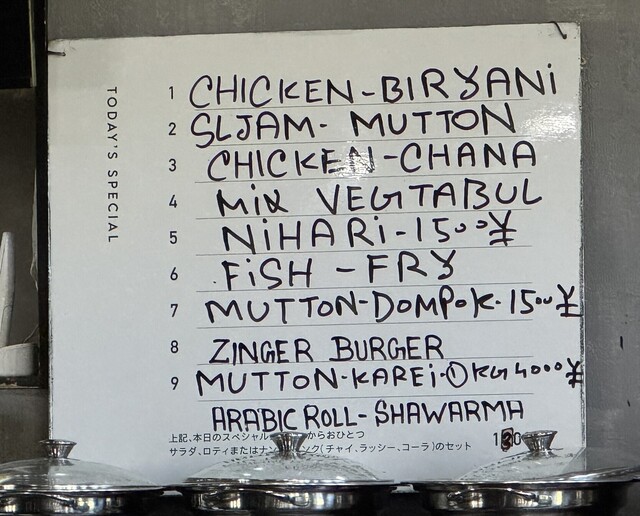 TODAY'S SPECIAL
1 CHICKEN-BIRYANi
2 SLJAM- MUTTON
3 CHICKEN-CHANA
4 MiX VEGTABUL
5 NiHARi-1500¥
6 FiSH - FRY
7 MUTTON-DOMPOK-1500¥
8 ZINGER BURGER
9 MUTTON-KAREi-①KG4000¥
ARABIC ROLL- SHAWARMA
上記、本日のスペシャル からおひとつ
サラダ、ロティまたはナン ンク(チャイ、ラッシー、コーラ)のセット